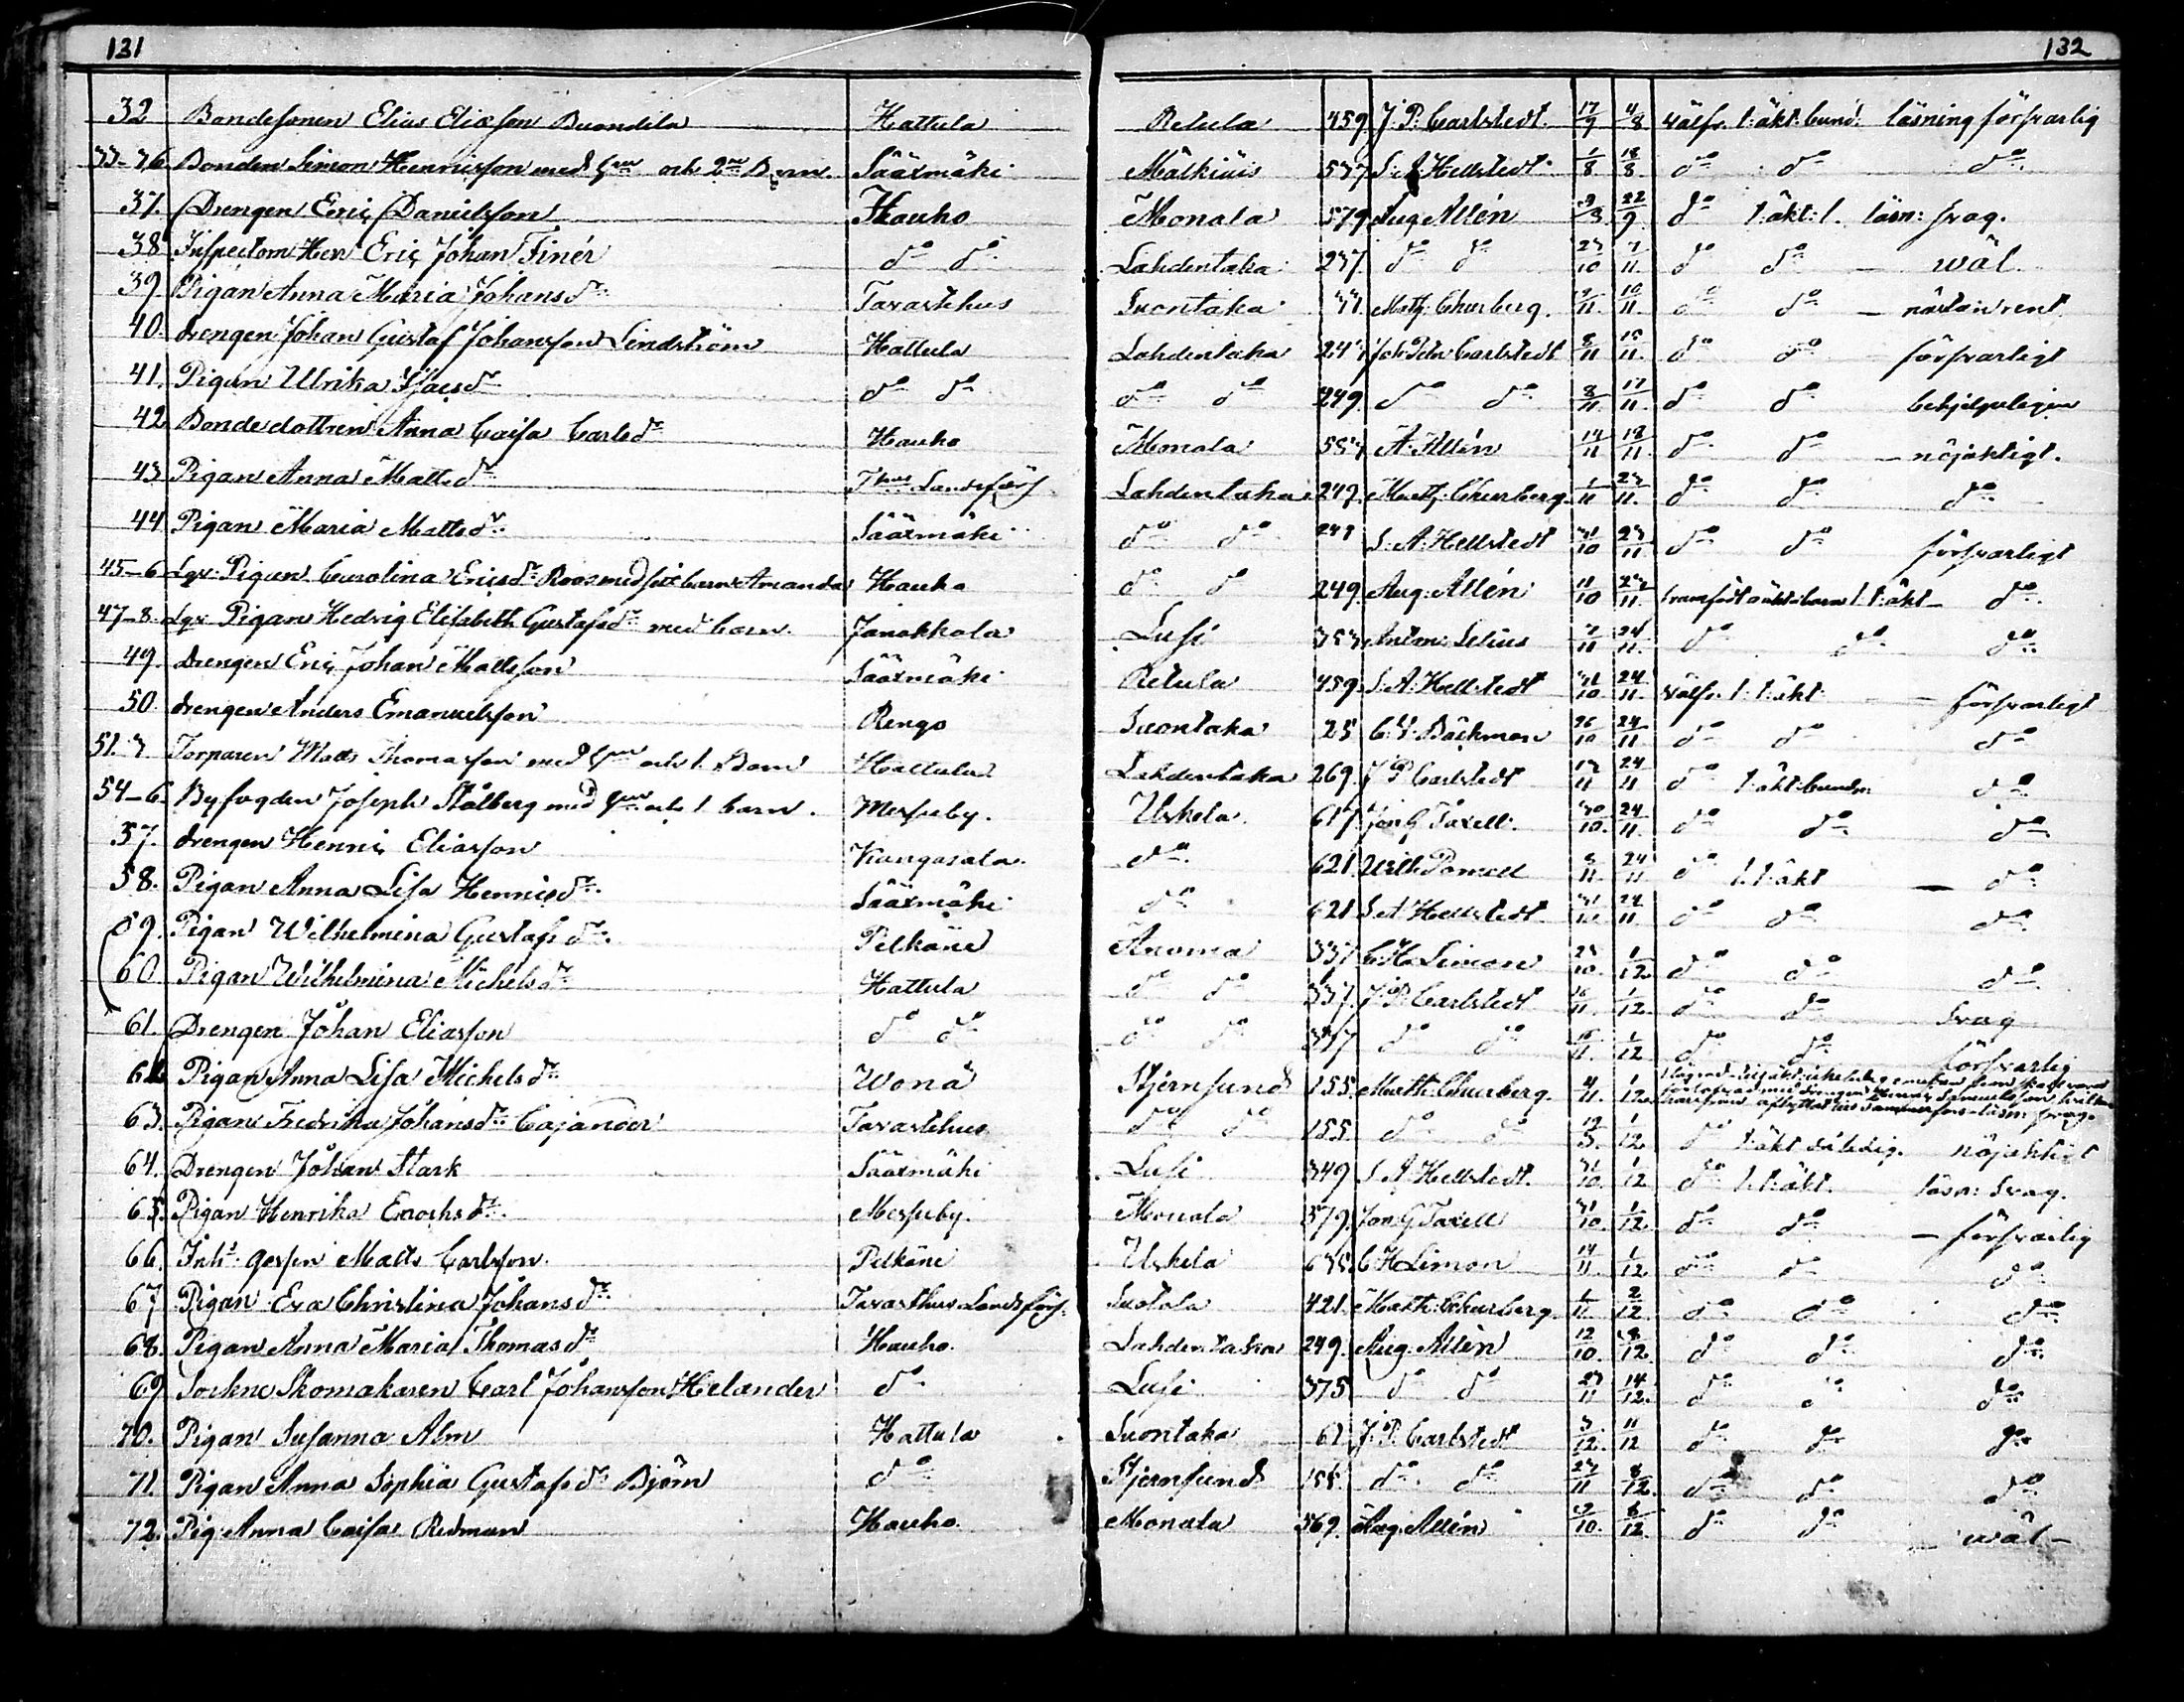 131
132
32 Bondesonen Elias Eliasson Buondila Hattula Retula 459 J. P. Carlstedt 17/9 4/8 välfr. l: äkt: bund. läsning försvarlig
33-36 Bonden Simon Henricsson med hru och 2ne Barn. Sääxmäki Mälkiäis 537 S. A Hellstedt 1/8 18/8 do do do
37. Drengen Eric Danielsson Hauho Monala 579 Aug Allén 22/9 do l: äkt: l. läsn: svag.
38 Inspectorn Herr Eric Johan Finér do do Lahdentaka 237 do do 23/10 7/11 do do — wäl
39. Pigan Anna Maria Johans dr Tavastehus Suontaka Math: Churberg. 10/11 do do — nästan rent
40. drengen Johan Gustaf Johansson Lindström Hattula Lahdentaka 247 Joh Petr Carlstedt 8/11 15/11 do do försvarligt
41. Pigan Ulrika Isacs dr do do do do 249. do do 8/11 17/11 do do behjelpeligen
42 Bonde dottren Anna Caisa Carls dr Hauho Monala A. Allén 14/11 18/11 do do — nöjaktigt.
43 Pigan Anna Matts dr Thus Landsförs Lahdentaka 247. Math: Churberg. 1/11 23/11 do do do
44 Pigan Maria Matts dr Sääxmäki do do 247 S. A. Hellstedt 31/10 23/11 do do försvarligt
45-6 Lgr: Pigan Carolina Erics dr Roos med sitt barn Amanda Hauho do do 249. Aug: Allén 11/10 23/11 framfödt oäkt: barn l: t: äkt — do
47-8. Lgr Pigan Hedvig Elisabeth Gustafs dr med barn. Janakkala Lusi Antm: Selius 24/11 do do do
49. Drengen Eric Johan Mattsson Sääxmäki Retula 459. S: A: Hellstedt 31/10 24/11 välfr. l: t: äkt — försvarligt
50. drengen Anders Emanuelsson Rengo Suontaka 25 Bäckman 26/10 24/11 do do do
51-3 Torparen Matts Thomasson med hru och 1. Barn Hattula Lahdentaka 269. J P Carlstedt 24/11 do l: äkt: bunden do
54-6. Byfogden Joseph Stålberg med hru och 1 barn. Messuby. Uskela 617 Jon G Taxell. 30/10 24/11 do do do
57. drengen Henric Eliasson Kangasala. do 621. Wilh Pomell 8/11 24/11 do l: t: äkt — do
58. Pigan Anna Lisa Henrics dr. Sääxmäki do 621 S. A. Hellstedt 31/10 24/11 do do do
59. Pigan Wilhelmina Gustafs dr. Pelkäne Anoma 337 C. H. Limon 25/10 1/12 do do do
60 Pigan Wilhelmina Michels dr Hattula do do 337. J: P: Carlstedt 16/11 1/12 do do svag
61. Drengen Johan Eliasson do do do do 337 do do 16/11 1/12 do do försvarlig
62 Pigan Anna Lisa Michels dr Wonå Stjernsund 155 Math: Churberg. 4/11 1/12
63. Pigan Fredrika Johans dr Cajander Tavastehus do do 155. do do 1/12 do l: äkt så ledig. nöjaktigt
64. Drengen Johan Stark Sääxmäki Lusi 349 S. A Hellstedt. 31/10 1/12 do l: t: äkt. läsn: svag.
65. Pigan Henrika Enochs dr. Messuby. Monala 579. Jon G Taxell 31/10 1/12 do do — försvarlig
66. Inhs gossen Matts Carlsson. Pelkäne Uskela 635. C H Limon 14/11 1/12 do do do
67 Pigan Eva Christina Johans dr Tavasthus Landsförs. Suotala 421. Math: Churberg. 1/11 2/12 do do do
68. Pigan Anna Maria Thomas dr Hauho. Lahdentaka 249. Aug. Allén 12/10 8/12 do do do
69 Sockne Skomakaren Carl Johansson Helander do Lusi 375 do do 27/11 14/12 do do do
70. Pigan Susanna Alm Hattula Suontaka 61 J. P. Carlstedt 3/12 11/12 do do do
71. Pigan Anna Sophia Gustafs dr Björn do Stjernsund 155. do do 27/11 8/12 do do do
72. Pig: Anna Caisa Redman Hauho. Monala 569. Aug. Allén 6/12 do do — wäl —